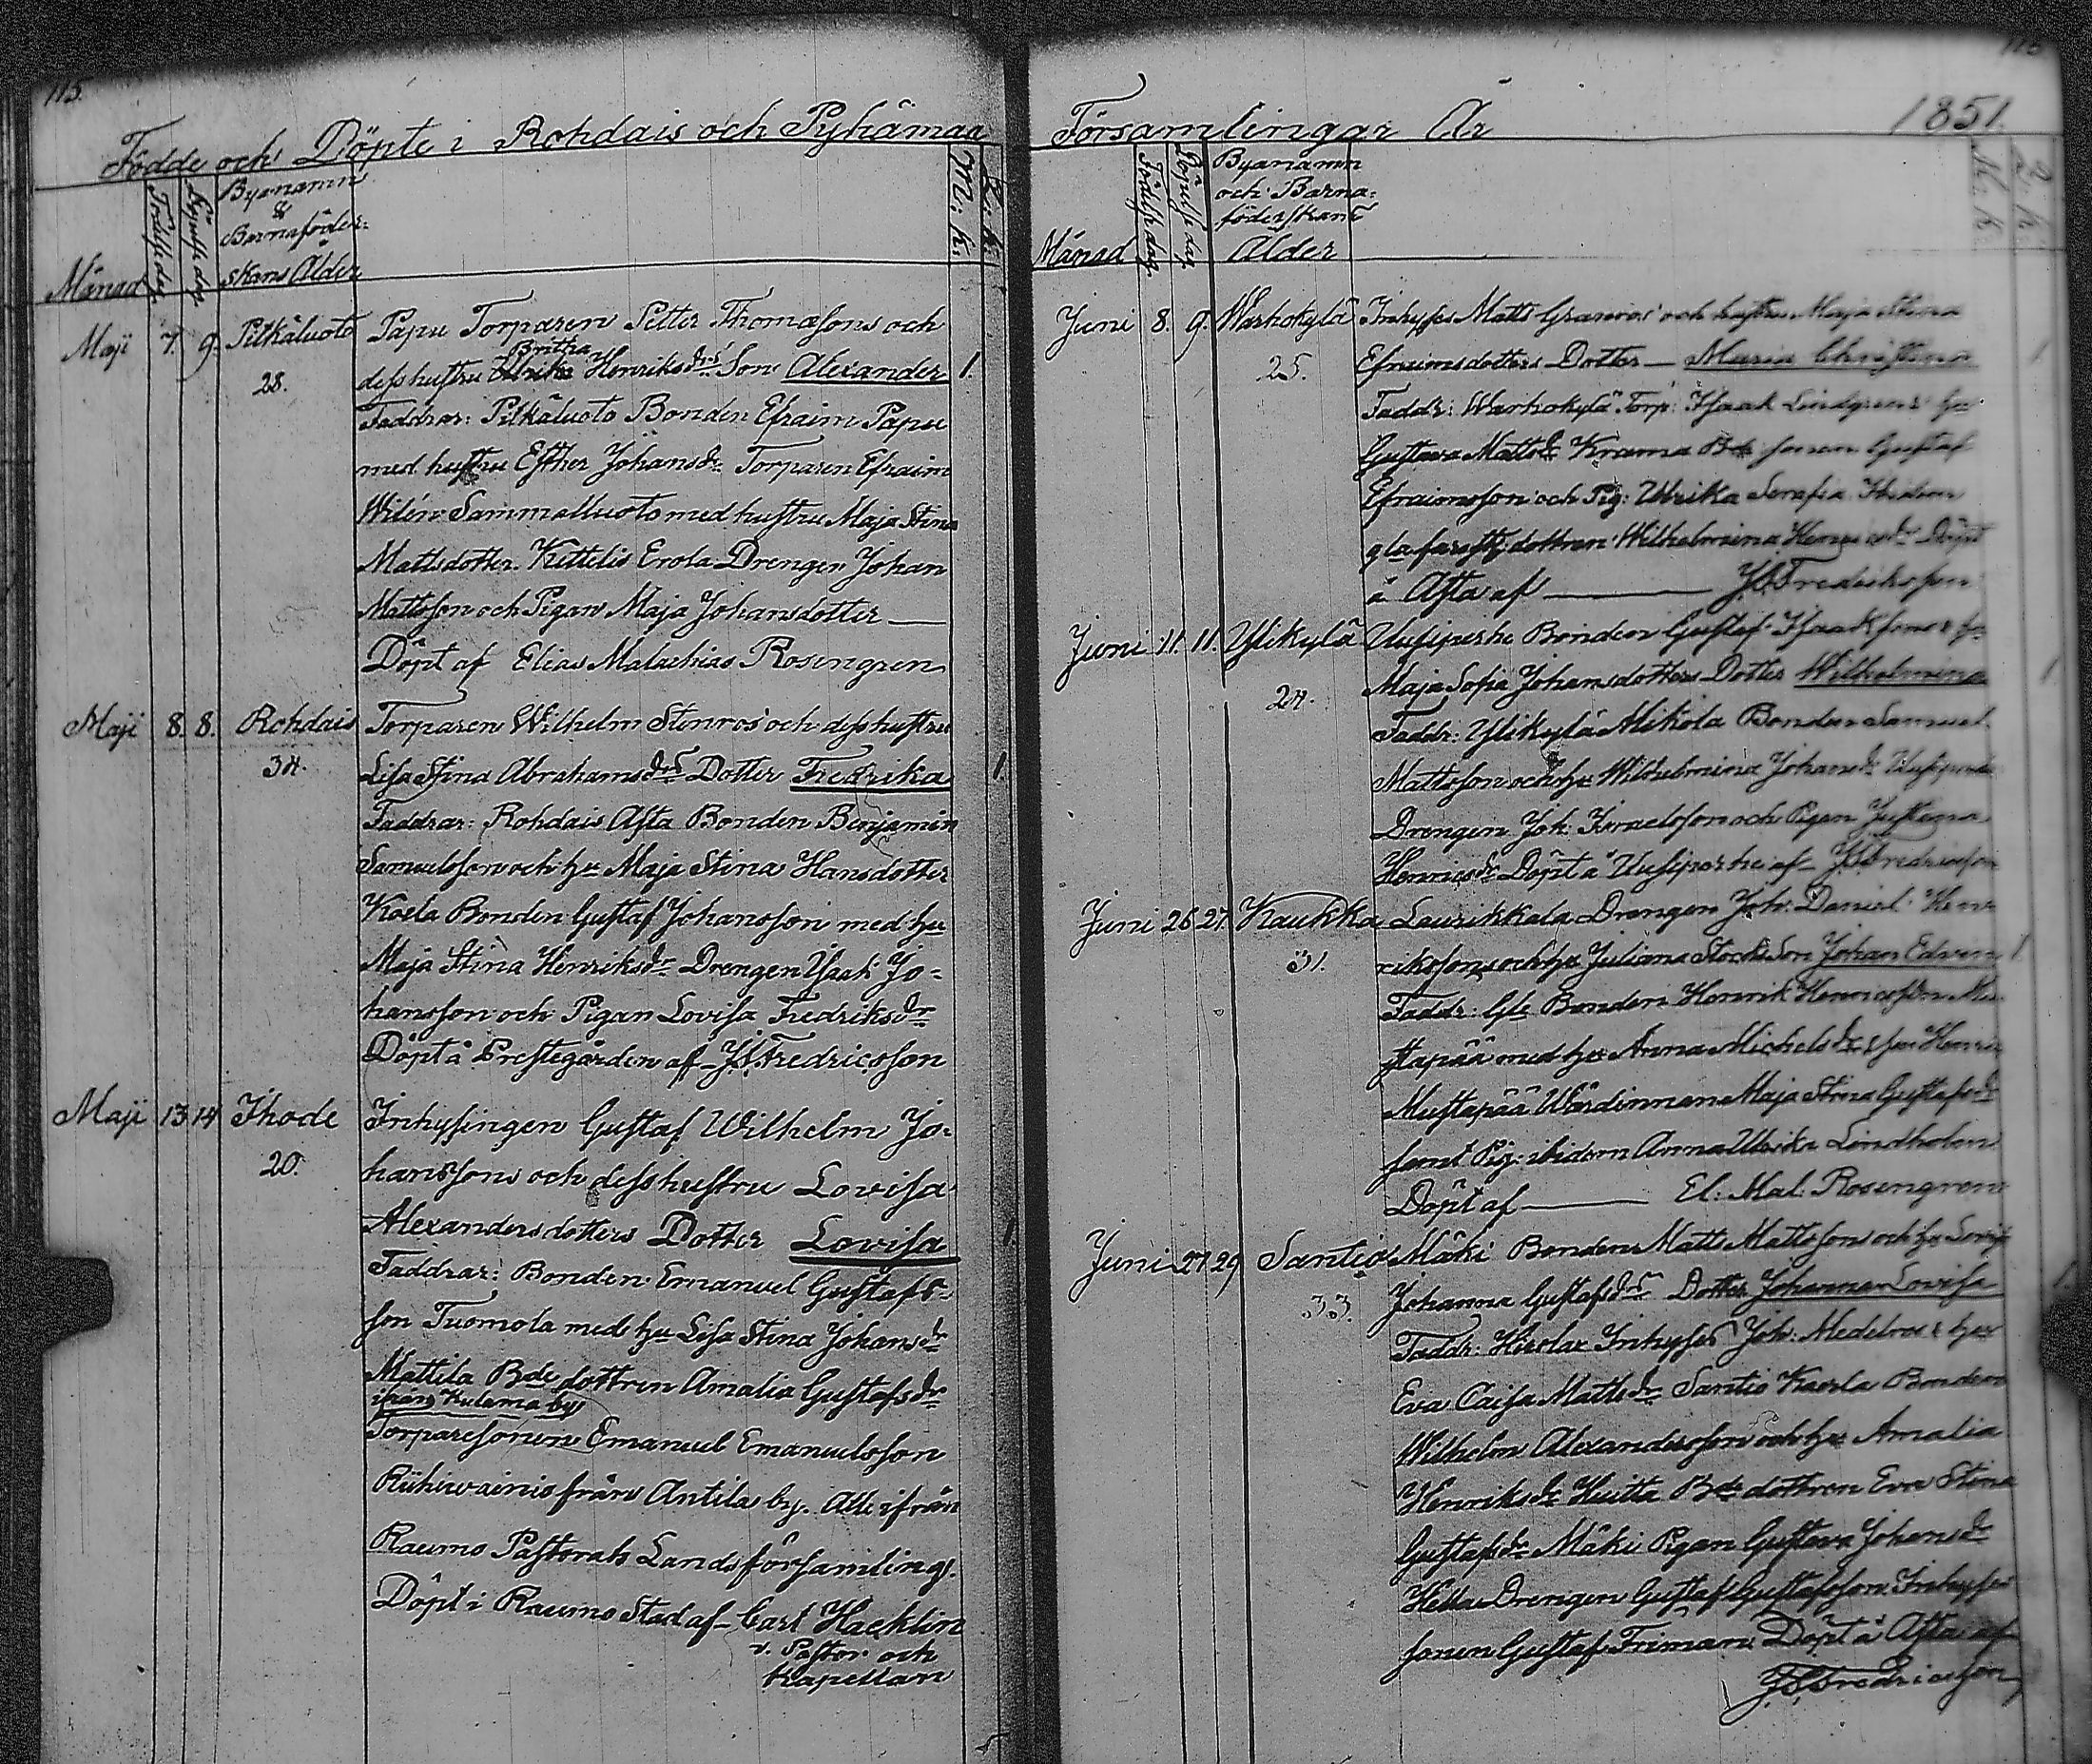 115.
Födde och Döpte i Rohdais och Pyhämaa
Månad
Födelse dag
Döpelse dag
Byanamn
&
Barnaföder-
skans Ålder
M. k.
Q. k.
Maji 7. 9. Pitkäluoto Papu Torparen Petter Thomasons och
28. dess hustru Ulrika Britha Henriksdrs Son Alexander 1.
Faddrar: Pitkäluoto Bonden Efraim Papu
med hustru Esther Johansdr Torparen Efraim
Wilén Sammalluoto med hustru Maja Stina
Mattsdotter. Kittelis Erola Drengen Johan
Mattsson och Pigan Maja Johansdotter —
Döpt af Elias Malachias Rosengren
Maji 8. 8. Rohdais Torparen Wilhelm Stenros' och dess hustru
34. Lisa Stina Abrahamsdrs Dotter Fredrika 1
Faddrar: Rohdais Asta Bonden Benjamin
Samuelsson och hu Maja Stina Hansdotter
Kaela Bonden Gustaf Johansson med hu
Maja Stina Henriksdr Drengen Isaak Jo-
hansson och Pigan Lovisa Fredriksdr
Döpt å Prestegården af — J. S. Fredricsson
Maji 13 14 Ihode Inhysingen Gustaf Wilhelm Jo-
20. hanssons och dess hustru Lovisa
Alexandersdotters Dotter Lovisa 1
Faddrar: Bonden Emanuel Gustafs-
son Tuomola med hu Lisa Stina Johansdr
Mattila Bde dottren Amalia Gustafsdr
ifrån Kulama by
Torparesonen Emanuel Emanuelsson
Riihivainio från Antila by. Alle ifrån
Raumo Pastorats Landsförsamling.
Döpt i Raumo Stad af — Carl Hacklin
v. Pastor och
Kapellan
Församlingar År 1851.
Månad
Födelse dag
Döpelse dag
Byanamn
och Barna-
föderskans
Ålder
M. k.
Q. k.
Juni 8. 9. Warhokylä Inhyses Matts Granros' och hustru Maja Stina
25. Efraimsdotters Dotter — Maria Christina 1
Faddr: Warhokylä Torp: Isaak Lindgren & hu
Gustava Mattsdr Krama Bde sonen Gustaf
Efraimsson och Pig: Ulrika Serafia
dottren Wilhelmina Döpt
å Asta af — J. S. Fredriksson
Juni 11. 11. Ylikylä Uusiperhe Bonden Gustaf Isaakssons & hu
24. Maja Sofia Johansdotters Dotter Wilhelmina 1
Faddr: Ylikylä Mikola Bonden Samuel
Mattsson och hu Wilhelmina Johansdr Uusiperhe
Drengen Joh: Israelsson och Pigan Justina
Henricsdr Döpt å Uusiperhe af — J. S. Fredricsson
Juni 26 27. Kaukka Laurikkala Drengen Joh: Daniel Hen-
31. rikssons och hu Juliana Storks Son Johan Edvin 1
Faddr: Bonden Henrik Henricsson Mus-
tapää med hu Anna Michelsdr
Mustapää Wärdinnan Maja Stina Gustafsdr
samt Pig: ibidem Anna Ulrika Lindholm
Döpt af — El: Mal: Rosengren
Juni 27 29 Santio Mäki Bonden Matts Mattssons och hu Lovisa
33. Johanna Gustafsdrs Dotter Johanna Lovisa 1
Faddr: Inhyses Joh: Medelros & hu
Eva Caisa Mattsdr Santio Kaerla Bonden
Wilhelm Alexandersson och hu Amalia
Henriksdr Huitta Bde dottren Eva Stina
Gustafsdr Mäki Pigan Gustava Johansdr
Drengen Gustaf Gustafsson Inhyses
sonen Gustaf Friman Döpt å Asta af
J. S. Fredricsson